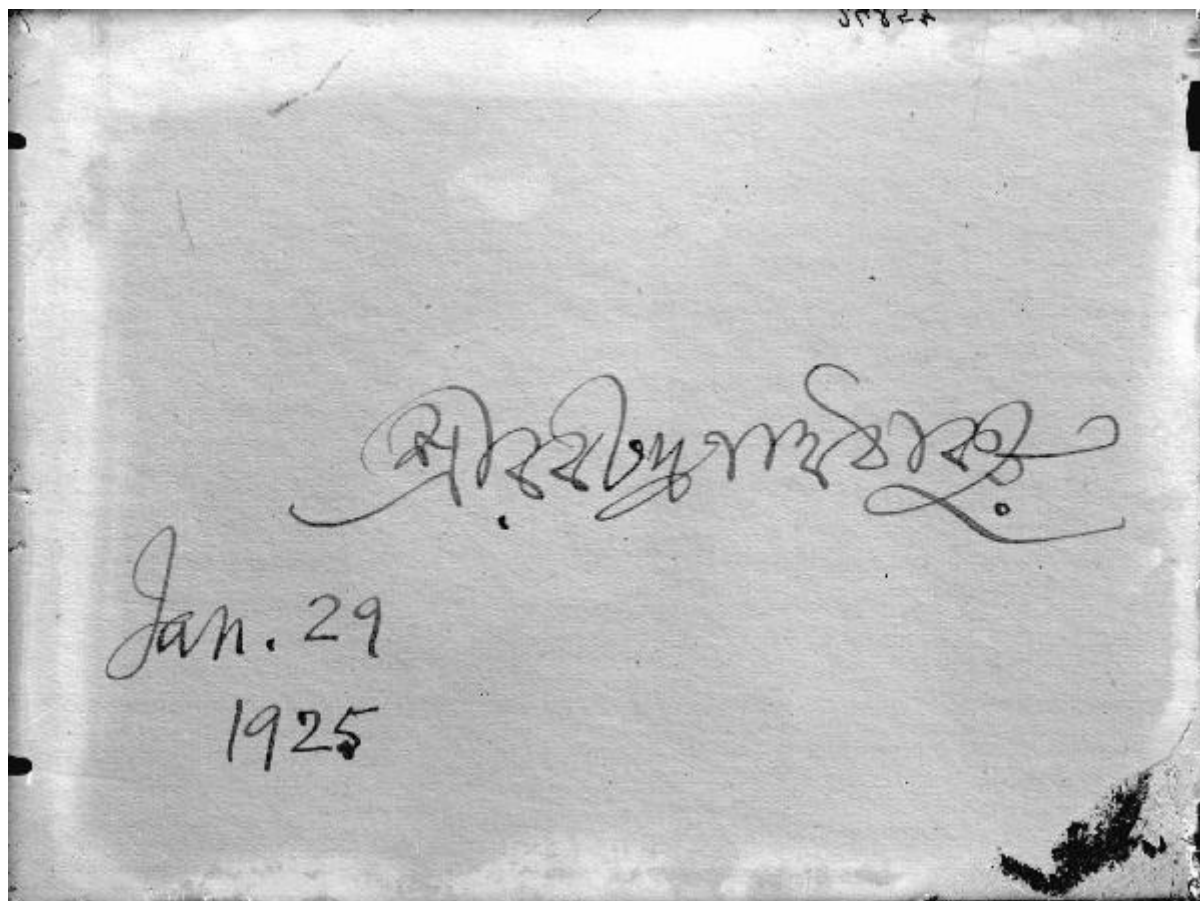 শ্রীরবীন্দ্রনাথ ঠাকুর
Jan. 29
1925